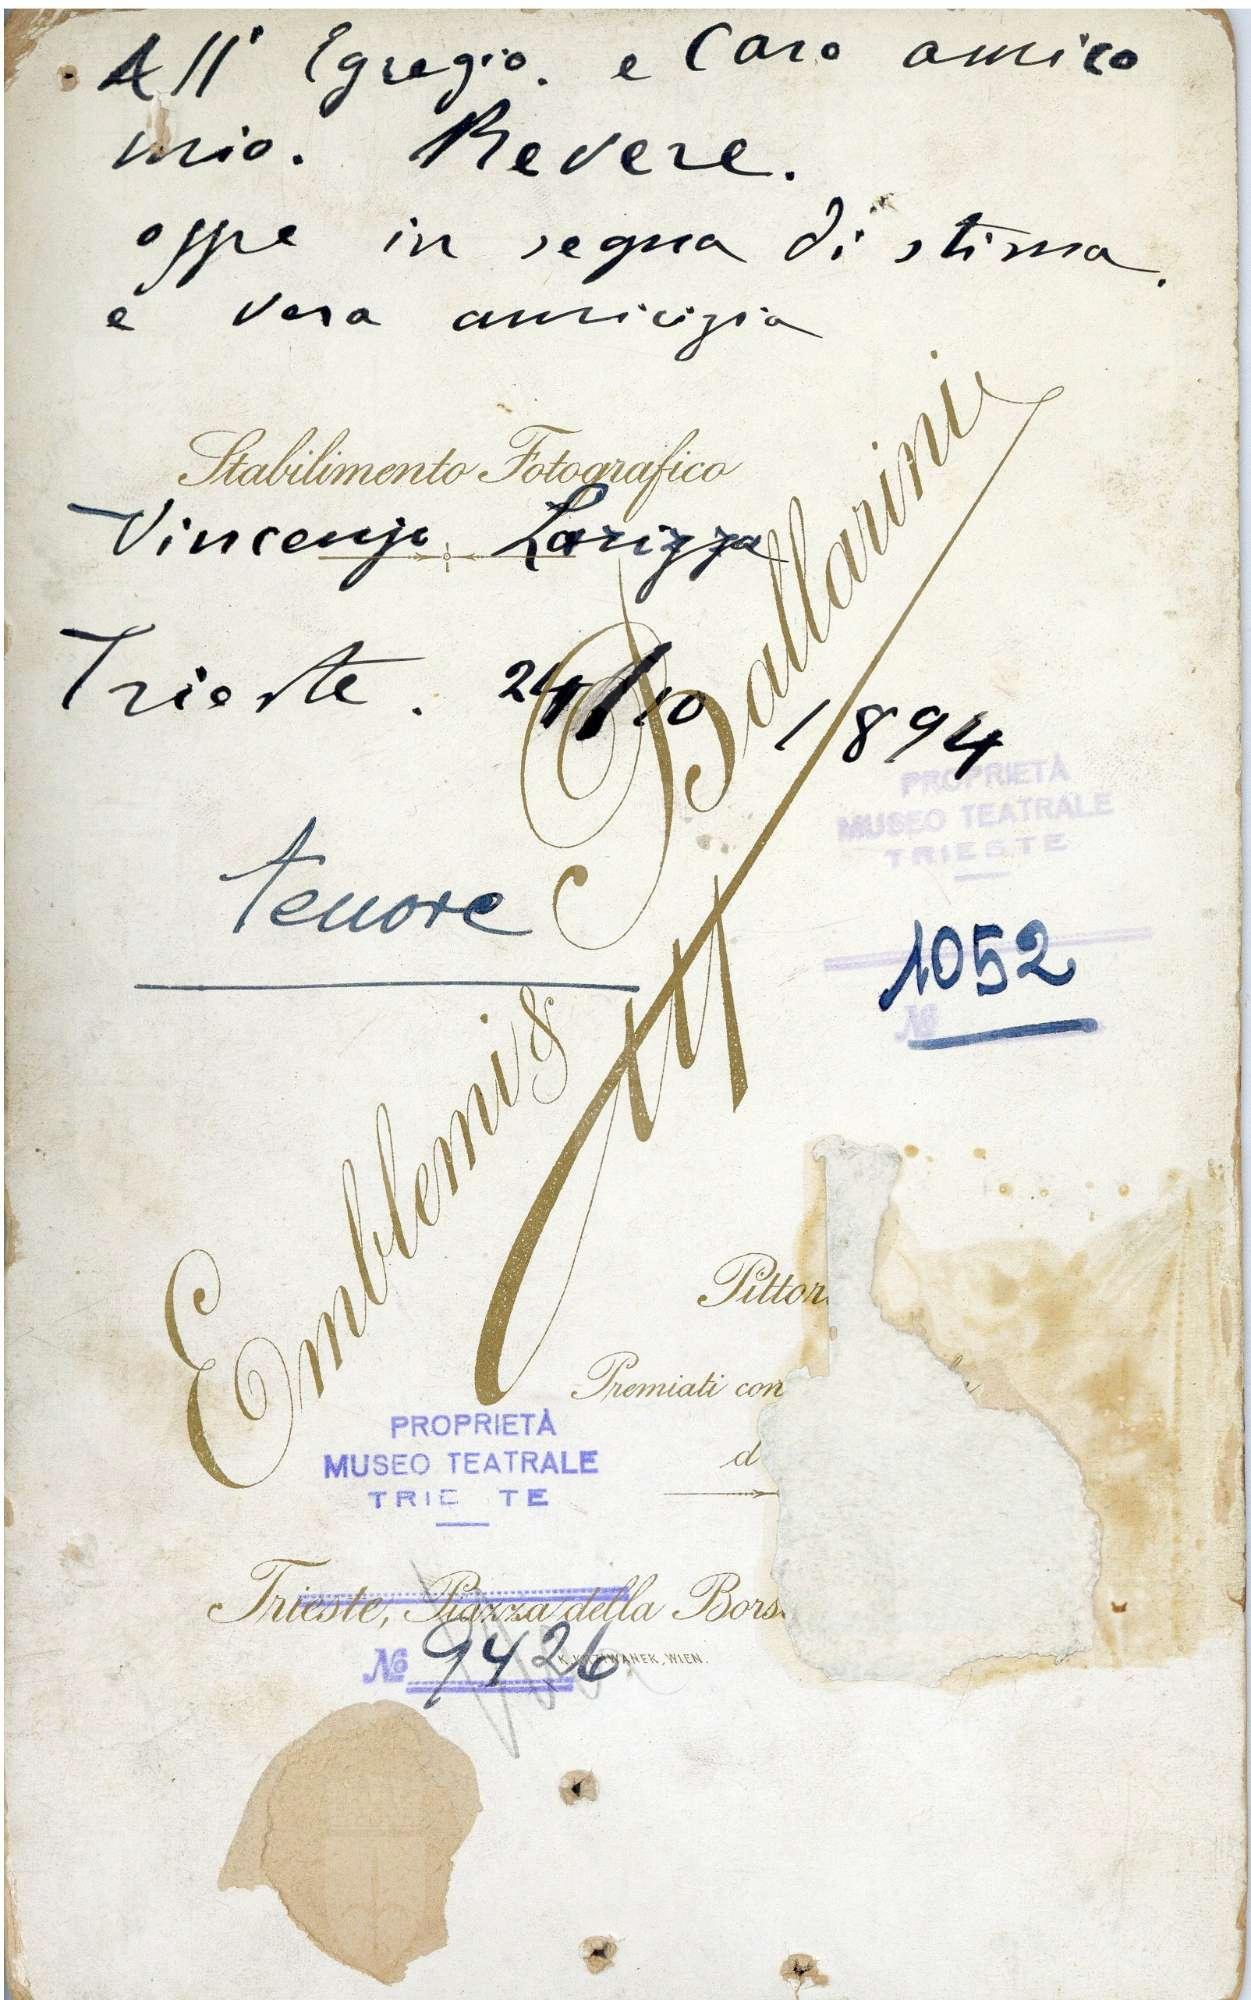 All' Egregio. e Caro amico
mio. Revere.
offre in segna di stima.
e vera amicizia
Stabilimento Fotografico
Vincenzo Larizza
Trieste. 24/10 1894
Emblemi & Ballarini
PROPRIETÀ
MUSEO TEATRALE
TRIESTE
tenore
1052
No
Pittor
Premiati con
d
PROPRIETÀ
MUSEO TEATRALE
TRIE TE
Trieste, Piazza della Bors
No 9426
K. KRZIWANEK, WIEN.